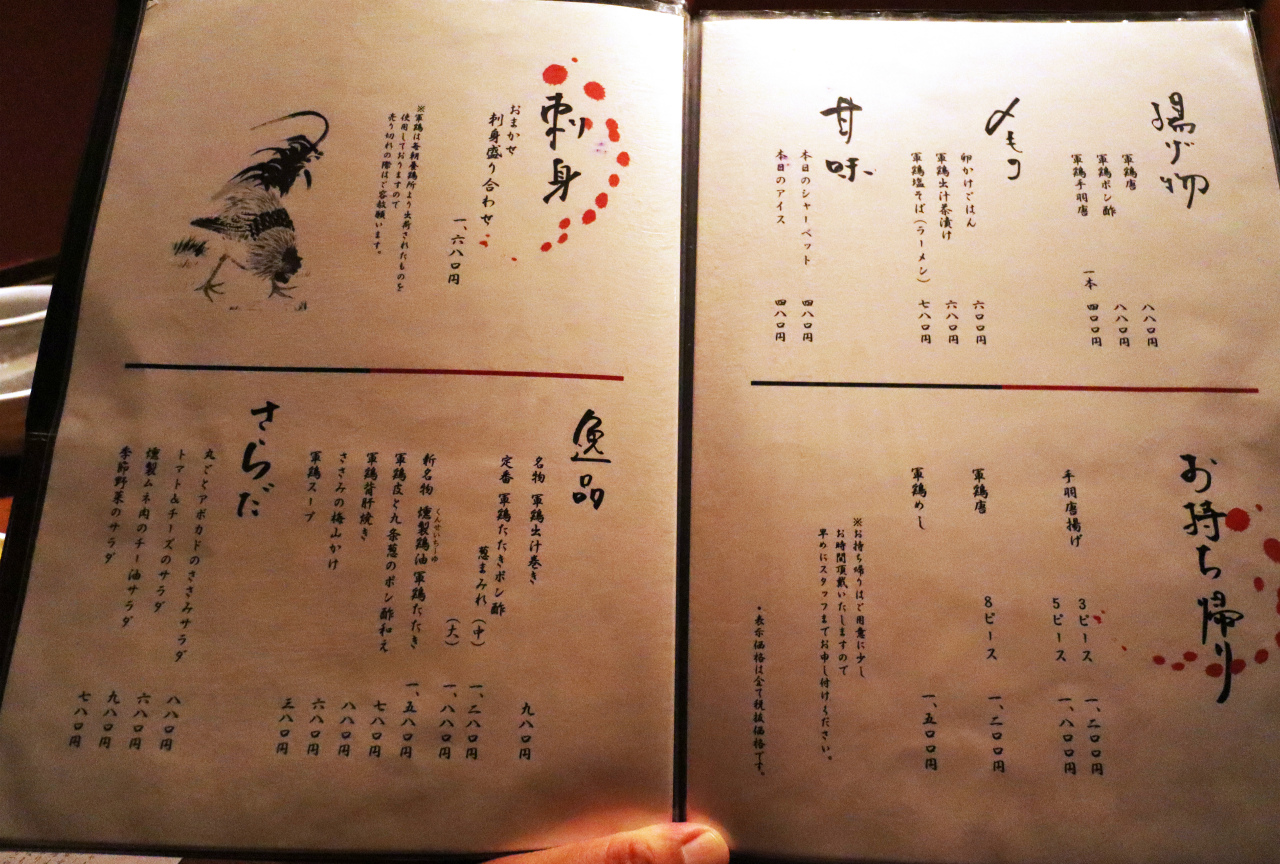 揚げ物
軍鶏唐 八八〇円
軍鶏ポン酢 八八〇円
軍鶏手羽唐 一本 四〇〇円
〆もの
卵かけごはん 六〇〇円
軍鶏出汁茶漬け 六八〇円
軍鶏塩そば(ラーメン) 七八〇円
甘味
本日のシャーベット 四八〇円
本日のアイス 四八〇円
お持ち帰り
手羽唐揚げ 3ピース 一、二〇〇円
5ピース 一、八〇〇円
軍鶏唐 8ピース 一、二〇〇円
軍鶏めし 一、五〇〇円
※お持ち帰りはご用意に少し
お時間頂戴いたしますので
早めにスタッフまでお申し付けください。
・表示価格は全て税抜価格です。
刺身
おまかせ
刺身盛り合わせ 一、六八〇円
※軍鶏は毎朝養鶏所より出荷されたものを
使用しておりますので
売り切れの際はご容赦願います。
逸品
名物 軍鶏出汁巻き 九八〇円
定番 軍鶏たたきポン酢
葱まみれ (中) 一、二八〇円
(大) 一、八八〇円
新名物 燻製鶏油 軍鶏たたき 一、五八〇円
くんせいちーゆ
軍鶏皮と九条葱のポン酢和え 七八〇円
軍鶏背肝焼き 八八〇円
ささみの梅山かけ 六八〇円
軍鶏スープ 三八〇円
さらだ
丸ごとアボカドのささみサラダ 八八〇円
トマト&チーズのサラダ 六八〇円
燻製ムネ肉のチー油サラダ 九八〇円
季節野菜のサラダ 七八〇円